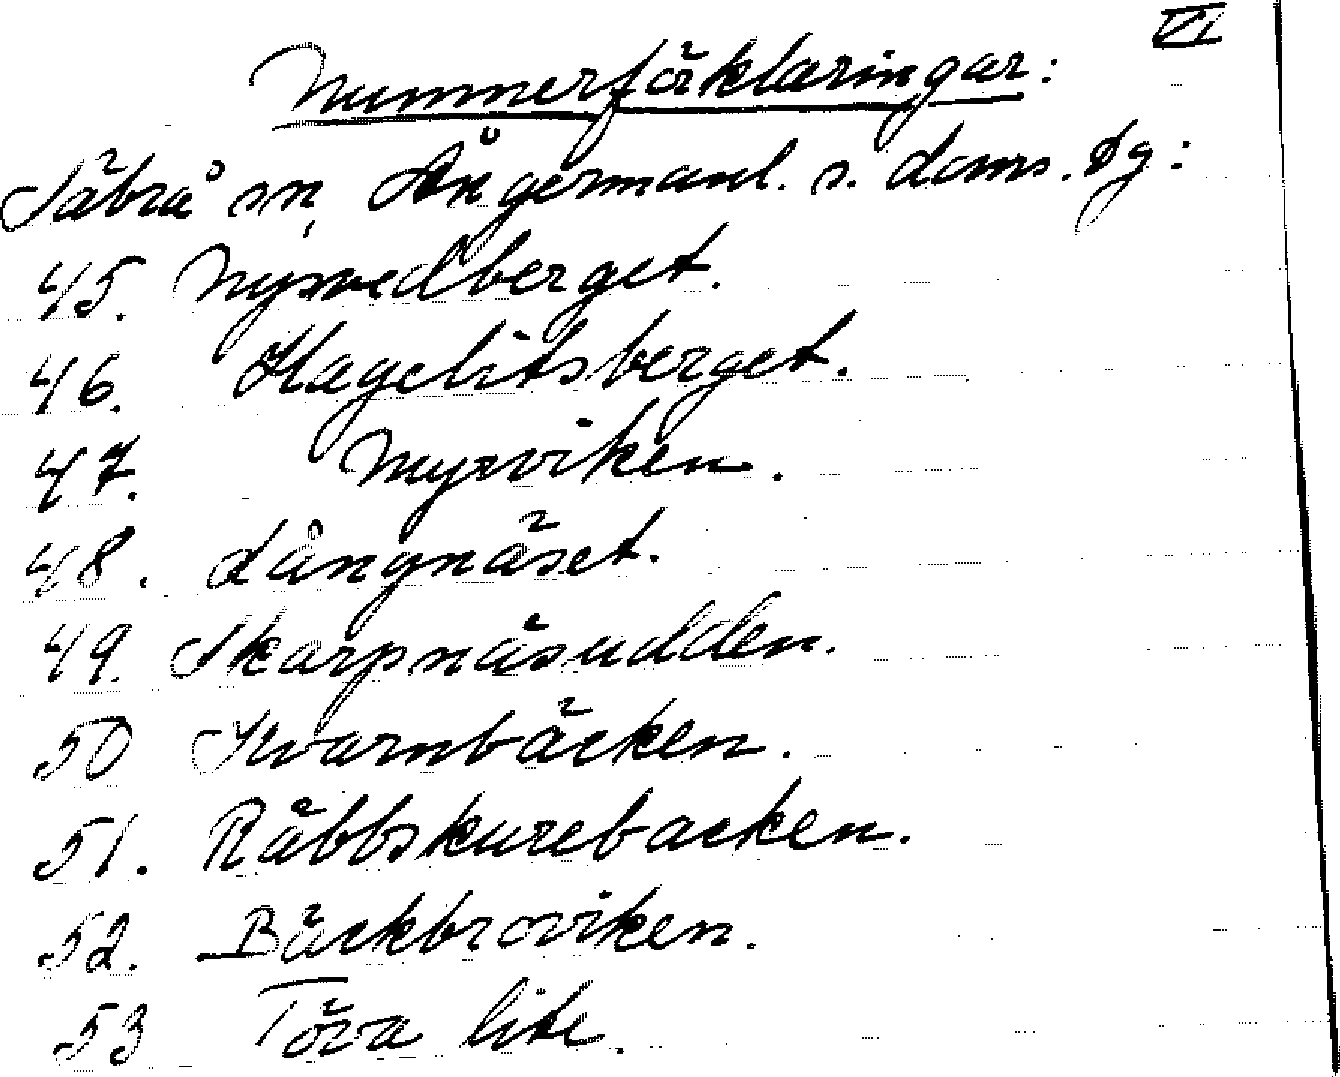 VI
Nummerförklaringar:
Säbrå sn, Ångermanl. s. doms. dg:
45. Nysvedberget.
46. Hagelitsberget.
47. Myrviken.
48. Långnäset.
49. Skarpnäsudden.
50 Kvarnbäcken.
51. Räbbskurebacken.
52. Bäckbroviken.
53 Töva lite.